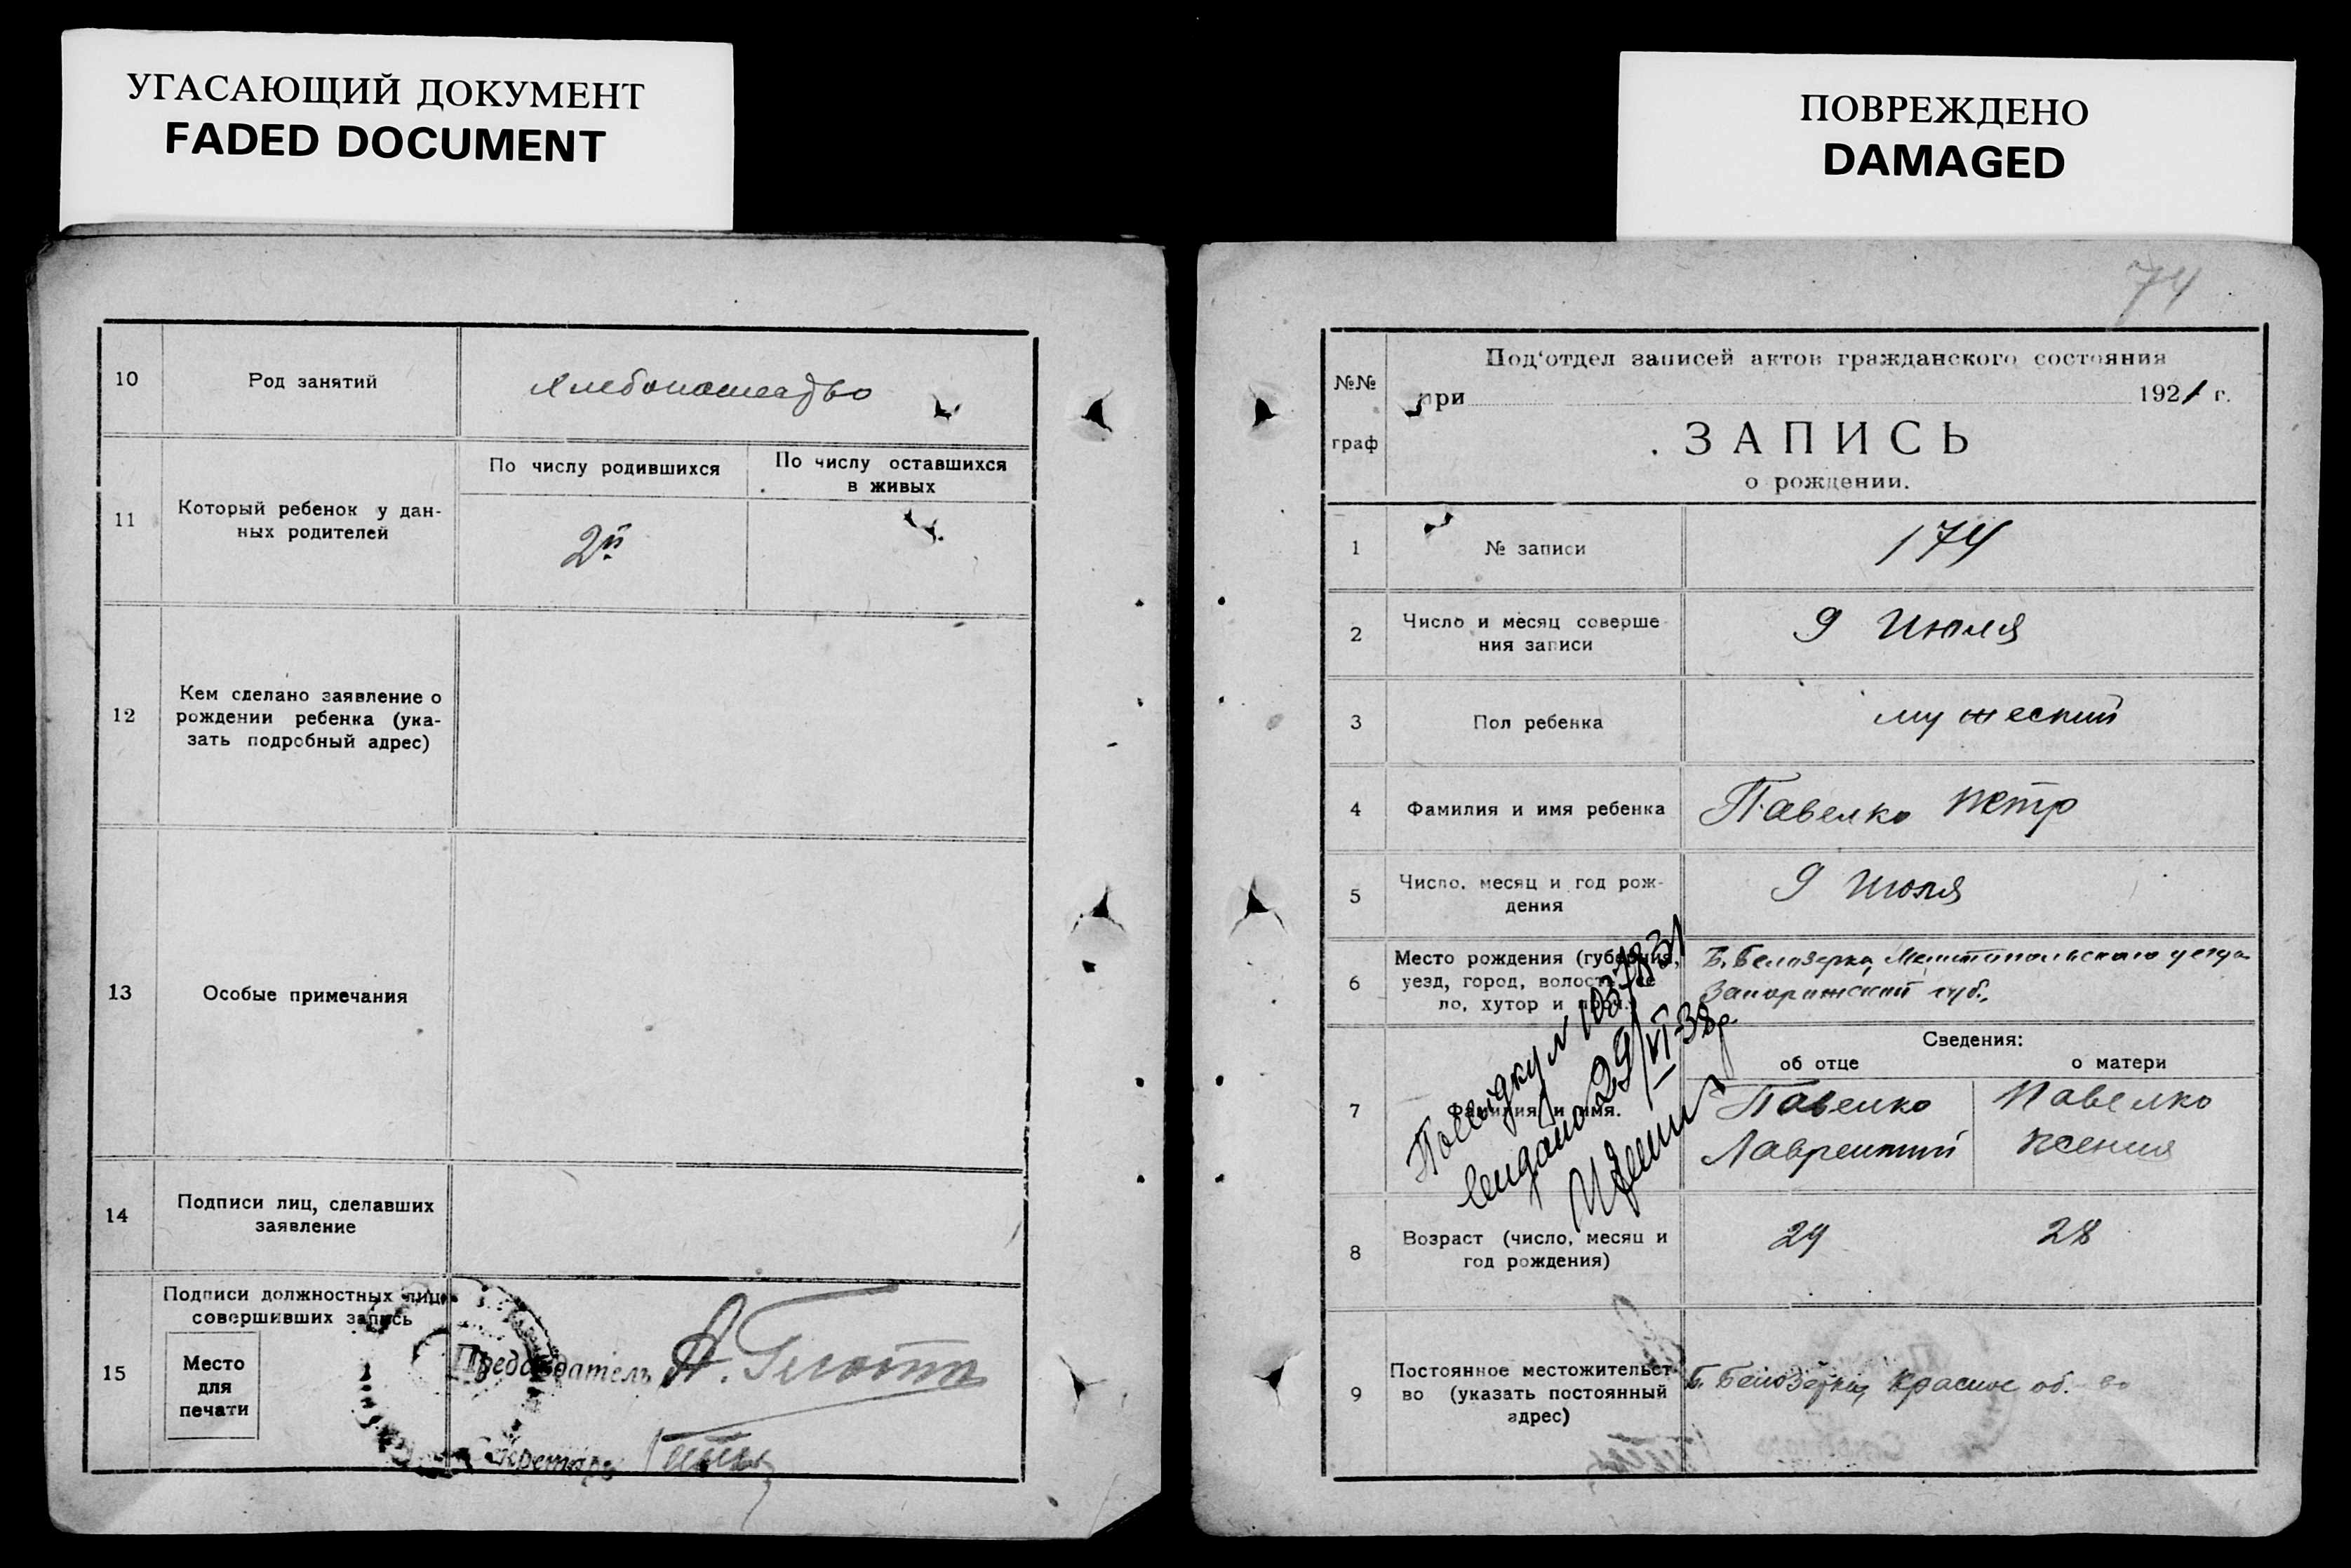 УГАСАЮЩИЙ ДОКУМЕНТ
FADED DOCUMENT
10
Род занятий
Хлебопашество
11
Который ребенок у дан-
ных родителей
По числу родившихся
По числу оставшихся
в живых
2й
12
Кем сделано заявление о
рождении ребенка (ука-
зать подробный адрес)
13
Особые примечания
14
Подписи лиц, сделавших
заявление
15
Подписи должностных лиц,
совершивших запись
Место
для
печати
Председатель А.
Секретарь
ПОВРЕЖДЕНО
DAMAGED
74
№№
граф
Под'отдел записей актов гражданского состояния
при 1921 г.
ЗАПИСЬ
о рождении.
1
№ записи
174
2
Число и месяц соверше-
ния записи
9 Июля
3
Пол ребенка
мужеский
4
Фамилия и имя ребенка
Павелко Петр
5
Число, месяц и год рож-
дения
9 Июля
6
Место рождения (губерния,
уезд, город, волость, се
ло, хутор и проч.)
Б. Белозерка, Мелитопольского уезда
Запорижский губ.
7
Фамилия и имя.
Сведения:
об отце
о матери
Павелко
Лаврентий
Павелко
Ксения
8
Возраст (число, месяц и
год рождения)
29
28
9
Постоянное местожительст-
во (указать постоянный
адрес)
Б. Белозерка, Красное об-во
29/VI-38г